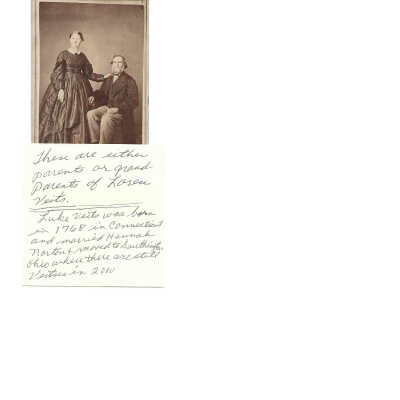 These are either
parents or grand-
Parents of Loren
Veits.
Luke Veits was born
in 1768 in Connecticut
and married Hannah
Norton & moved to
Ohio where there are still
Veitses in 2010